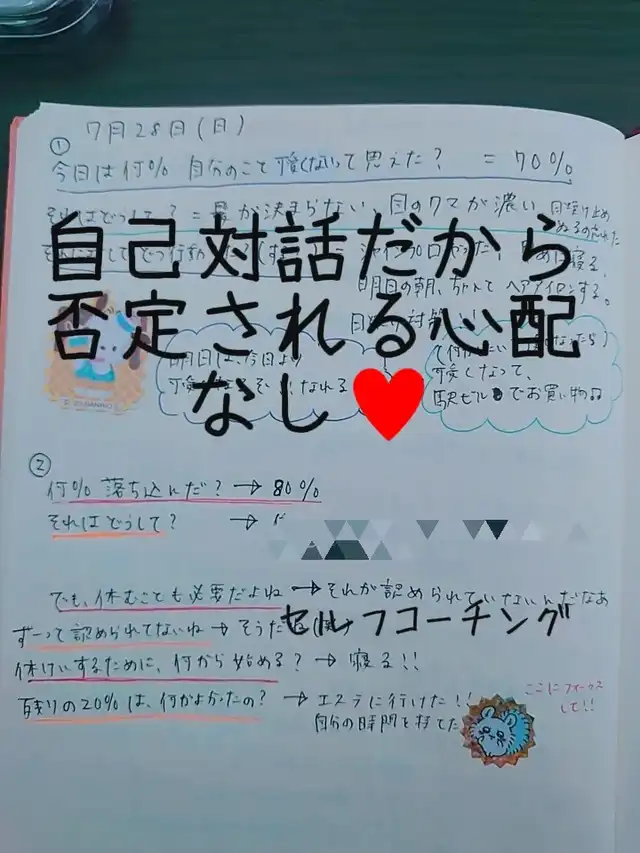 7月28日(日)
①
今日は何% 自分のこと可愛くないって思えた? = 70%
それはどうして? = 髪が決まらない、目のクマが濃い 日焼け止め
ぬるの忘れた
自己対話だから
寝る。
明日の朝、ちゃんと ヘアアイロンする。
否定される心配
明日は、今日より
可愛く
なれる
可愛くなって、
駅ビルでお買い物
なし
②
何% 落ち込んだ? → 80%
それはどうして? →
でも、休むことも必要だよね → それが認められていないんだなあ
ずーって認められてないね → そうだ
セルフコーチング
休けいするために、何から始める? → 寝る!!
残りの20%は、何がよかったの? → エステに行けた!!
自分の時間を持てた
ここにフォーカス
して!!